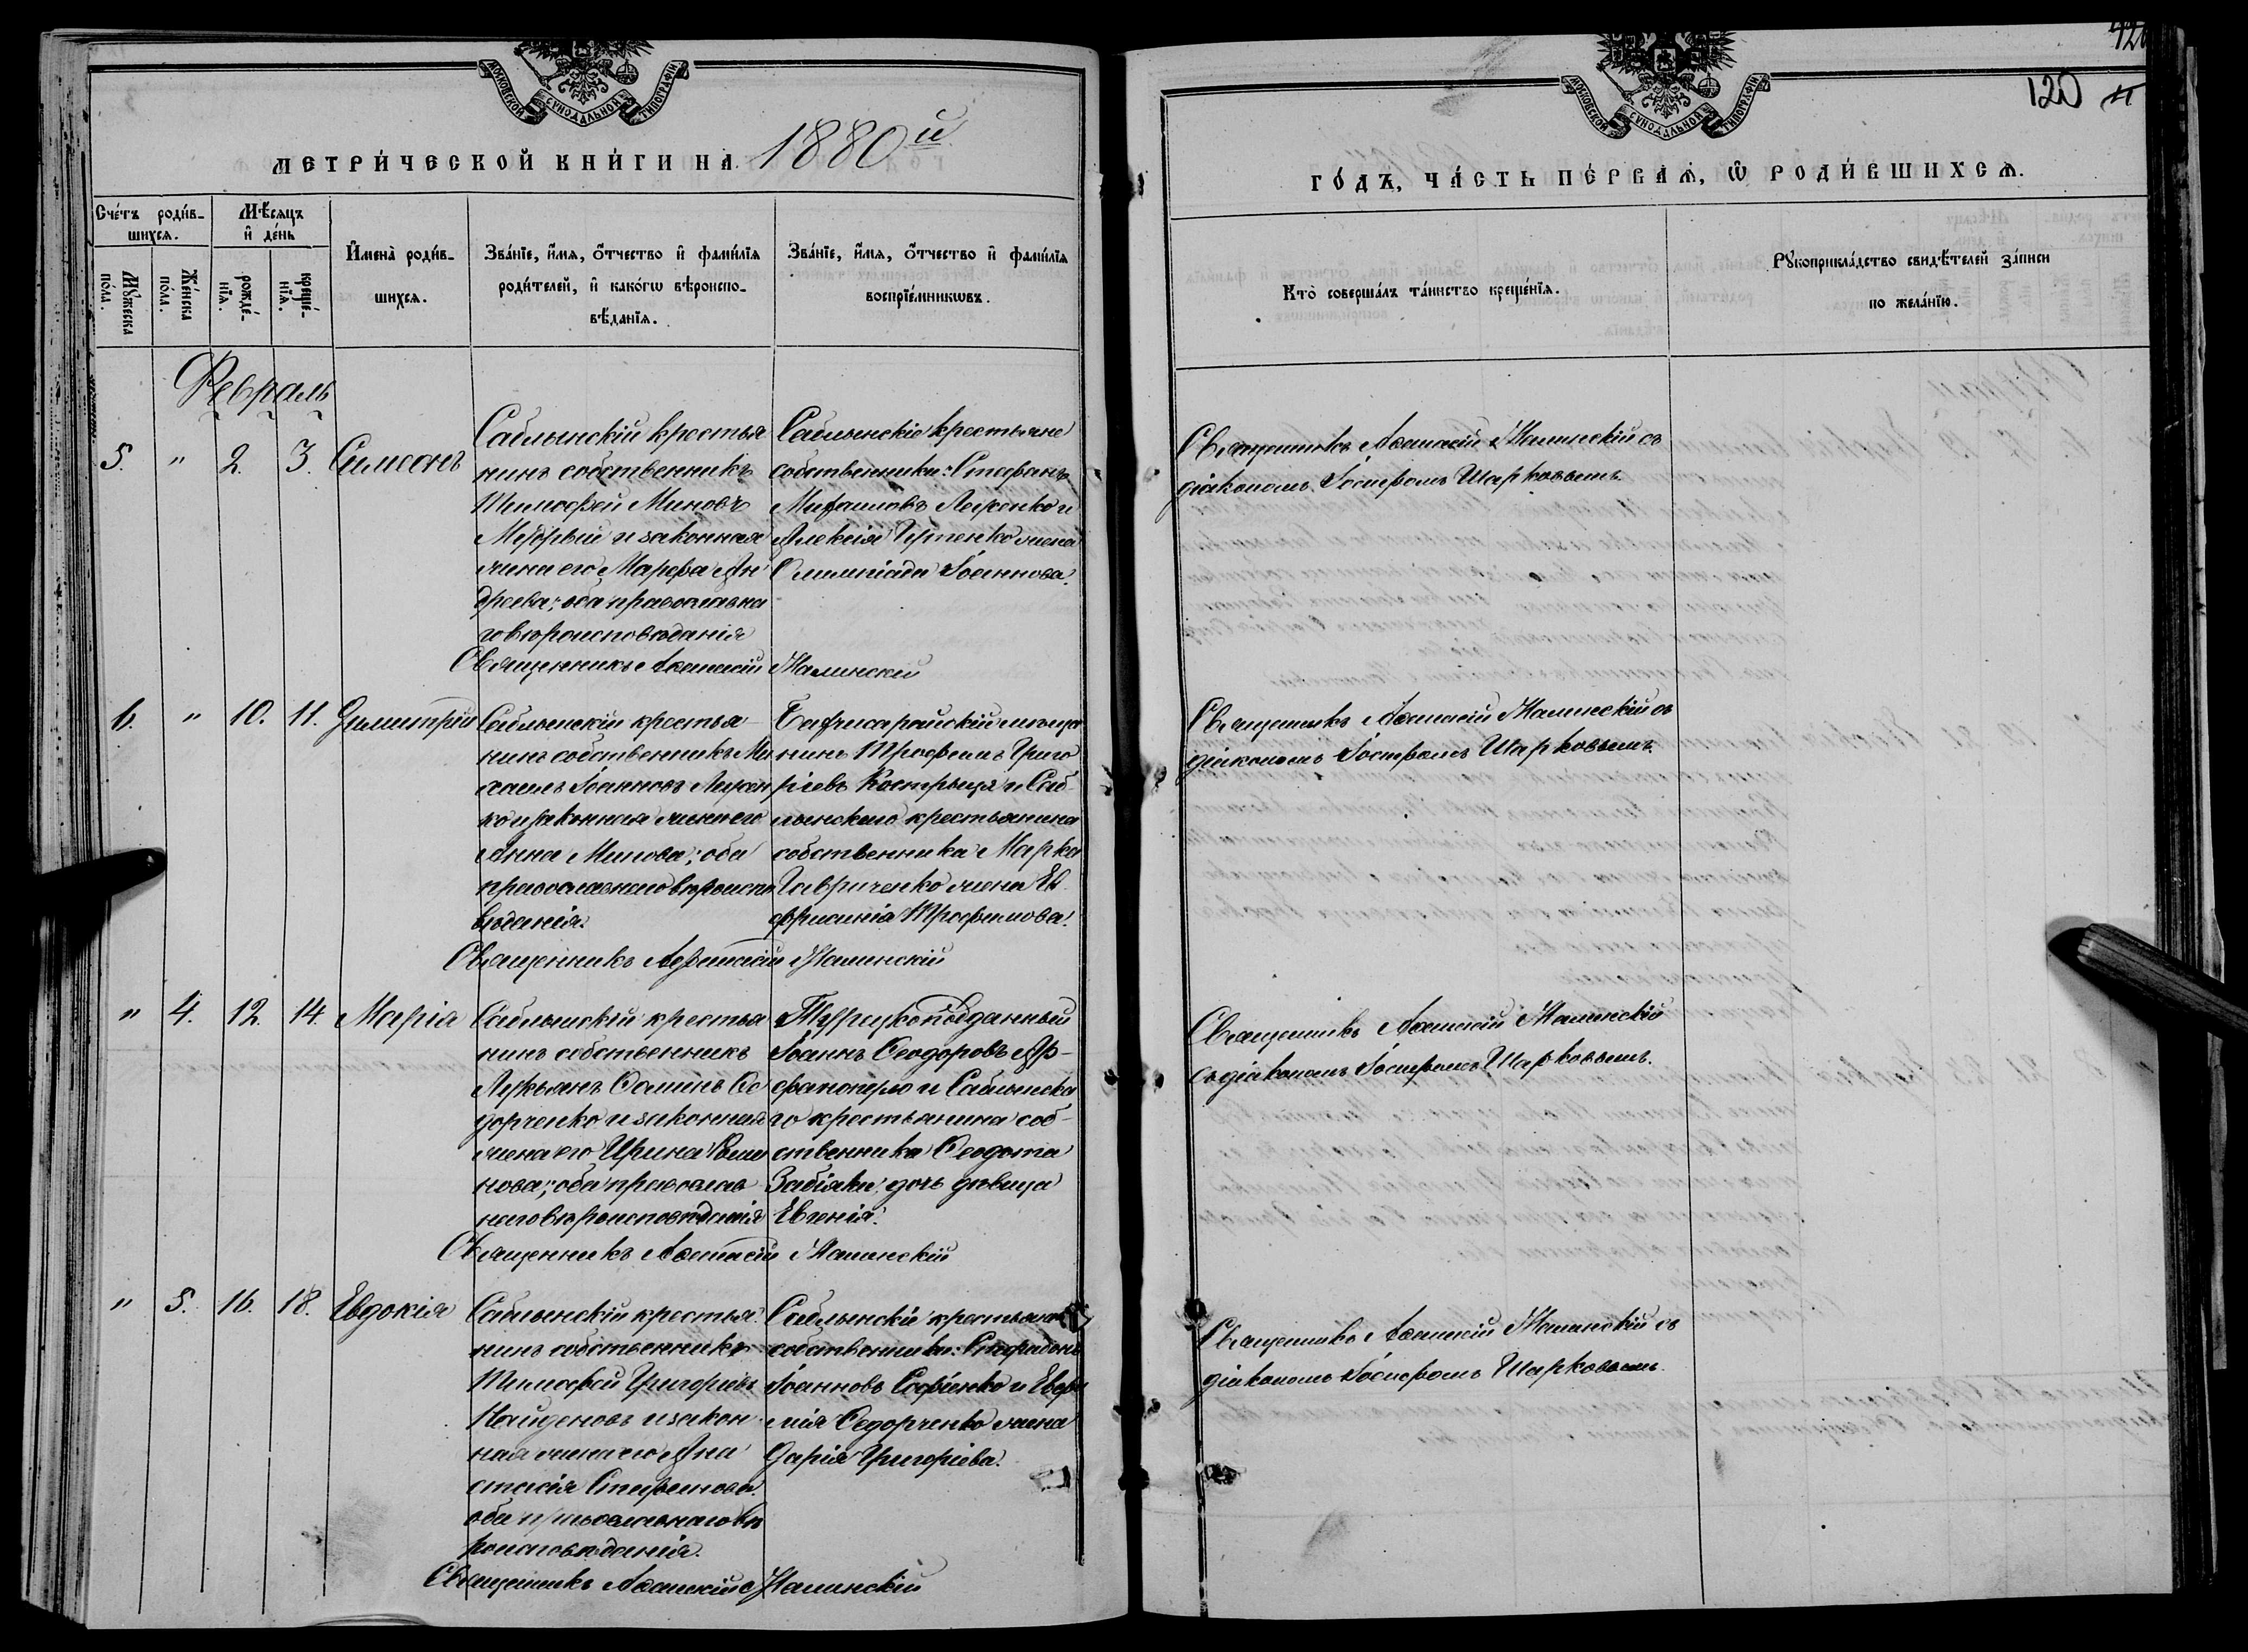 МОСКОВСКОЙ СѴНОДАЛЬНОЙ ТИПОГРАФІИ
МЕТРИ́ЧЕСКОЙ КНИ́ГИ НА 1880й
Сче́тъ роди́в-
шихся.
Мѣ́сяцъ
и де́нь
Му́жеска
по́ла.
Же́нска
по́ла.
рожде́-
нїя.
креще́-
нїя.
Имена̀ роди́в-
шихся.
Зва́нїе, и́мя, о́тчество и фами́лїя
роди́телей, и како́гѡ вѣроиспо-
вѣ́данїя.
Зва́нїе, и́мя, о́тчество и фами́лїя
воспрїе́мникѡвъ.
Февраль
5. " 2. 3. Симеонъ
Саблынскій крестья
нинъ собственникъ
Тимофей Миновъ
и законная
жена его Марфа Ан
дреева; оба православна
го вѣроисповѣданія
Саблынскіе крестьяне
собственники: Стефанъ
Михаиловъ и
Алексія жена
Олимпіада Іоаннова.
Священникъ Афанасій Малинскій
6. " 10. 11. Димитрій
Саблынскій крестья
нинъ собственникъ Ми
хаилъ Іоанновъ
ко и законная жена его
Анна Минова; оба
православнаго вѣроиспо
вѣданія.
мѣща
нинъ Трофимъ Григо
ріевъ Кострыця и Саб-
лынскаго крестьянина
собственника Марка
Гавриченко жена Ев
фросинія Трофимова.
Священникъ Афанасій Малинскій
" 4. 12. 14. Марія
Саблынскій крестья
нинъ собственникъ
Лукьянъ Ѳоминъ Ѳе
дорченко и законная
жена его Ирина
нова; оба православ
наго вѣроисповѣданія
Турецкоподданный
Іоаннъ Ѳеодоровъ
и Саблынска
го крестьянина соб-
ственника Ѳеодота
Забіяки дочь дѣвица
Евгенія.
Священникъ Афанасій Малинскій
" 5. 16. 18. Евдокія
Саблынскій крестья
нинъ собственникъ
Тимофей Григорьевъ
Найденовъ и закон
ная жена его Ана
стасія Стефанова
оба православнаго вѣ
роисповѣданія.
Саблынскіе крестьяне
собственники: Спиридонъ
Іоанновъ и Евфи
мія Ѳедорченко жена
Дарія Григоріева.
Священникъ Афанасій Малинскій
120
МОСКОВСКОЙ СѴНОДАЛЬНОЙ ТИПОГРАФІИ
ГО́ДЪ, ЧА́СТЬ ПЕ́РВАЯ, Ѡ РОДИ́ВШИХСЯ.
Кто̀ соверша́лъ та́инство креще́нїя.
Рꙋкоприкла́дство свидѣ́телей за́писи
по жела́нїю.
Священникъ Афанасій Малинскій съ
діакономъ Іосифомъ Шарковымъ.
Священникъ Афанасій Малинскій съ
діакономъ Іосифомъ Шарковымъ.
Священникъ Афанасій Малинскій
съ діакономъ Іосифомъ Шарковымъ.
Священникъ Афанасій Малинскій съ
діакономъ Іосифомъ Шарковымъ.